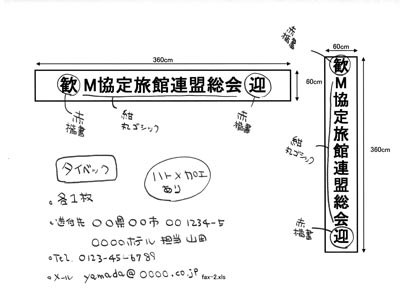 360cm
60cm
歓 M協定旅館連盟総会 迎
赤
楷書
紺
丸ゴシック
赤
楷書
60cm
360cm
歓M協定旅館連盟総会迎
赤
楷書
紺
丸ゴシック
赤
楷書
タイベック
ハトメ加工
あり
・各1枚
・送付先 〇〇県〇〇市 〇〇 1234-5
〇〇〇〇ホテル 担当 山田
・Tel 0123-45-6789
・メール yamada@〇〇〇〇.co.jp
fax-2.xls